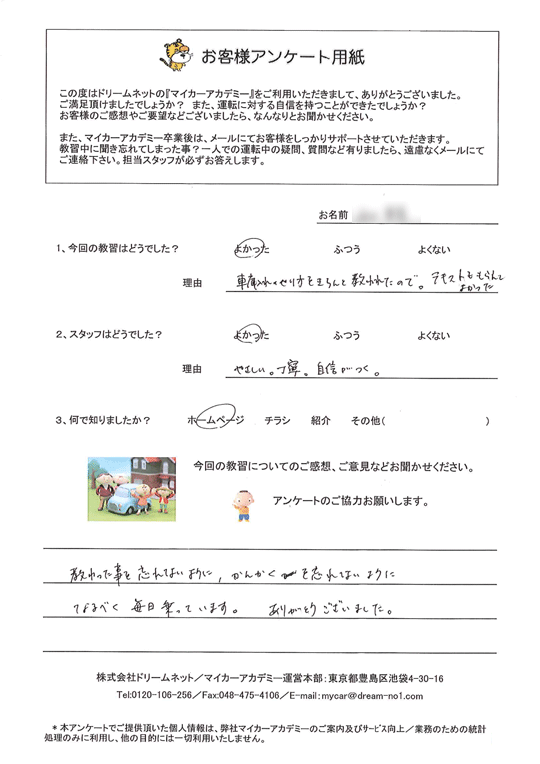 お客様アンケート用紙
この度はドリームネットの『マイカーアカデミー』をご利用いただきまして、ありがとうございました。
ご満足頂けましたでしょうか? また、運転に対する自信を持つことができたでしょうか?
お客様のご感想やご要望などございましたら、なんなりとお聞かせください。
また、マイカーアカデミー卒業後は、メールにてお客様をしっかりサポートさせていただきます。
教習中に聞き忘れてしまった事?一人での運転中の疑問、質問など有りましたら、遠慮なくメールにて
ご連絡下さい。担当スタッフが必ずお答えします。
お名前
1、今回の教習はどうでした? よかった ふつう よくない
理由 車庫入れのやり方をきちんと教われたので。テキストももらえて
よかった
2、スタッフはどうでした? よかった ふつう よくない
理由 やさしい。丁寧。自信がつく。
3、何で知りましたか? ホームページ チラシ 紹介 その他( )
今回の教習についてのご感想、ご意見などお聞かせください。
アンケートのご協力お願いします。
教わった事を忘れないように、かんかくを忘れないように
なるべく毎日乗っています。 ありがとうございました。
株式会社ドリームネット/マイカーアカデミー運営本部:東京都豊島区池袋4-30-16
Tel:0120-106-256/Fax:048-475-4106/E-mail:mycar@dream-no1.com
*本アンケートでご提供頂いた個人情報は、弊社マイカーアカデミーのご案内及びサービス向上/業務のための統計
処理のみに利用し、他の目的には一切利用いたしません。